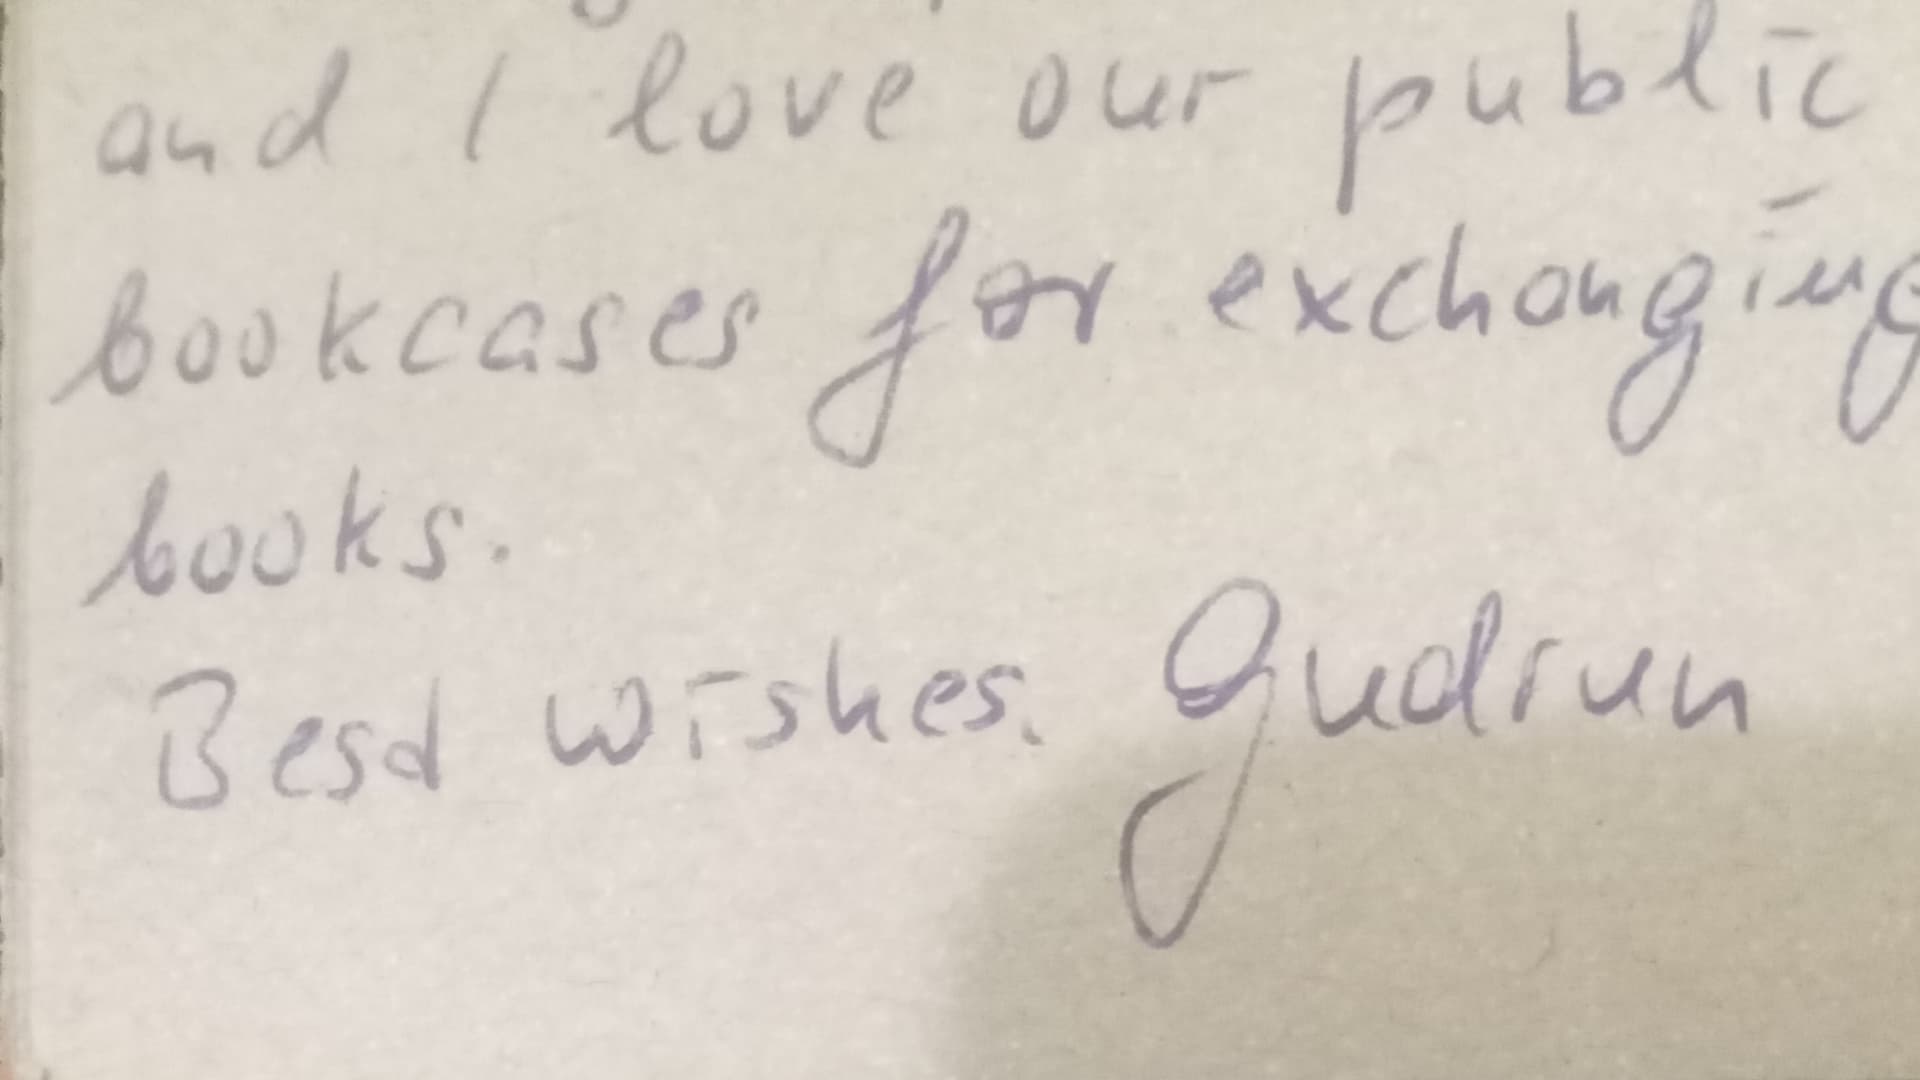 and I love our public
bookcases for exchanging
books.
Besd wishes. Gudrun